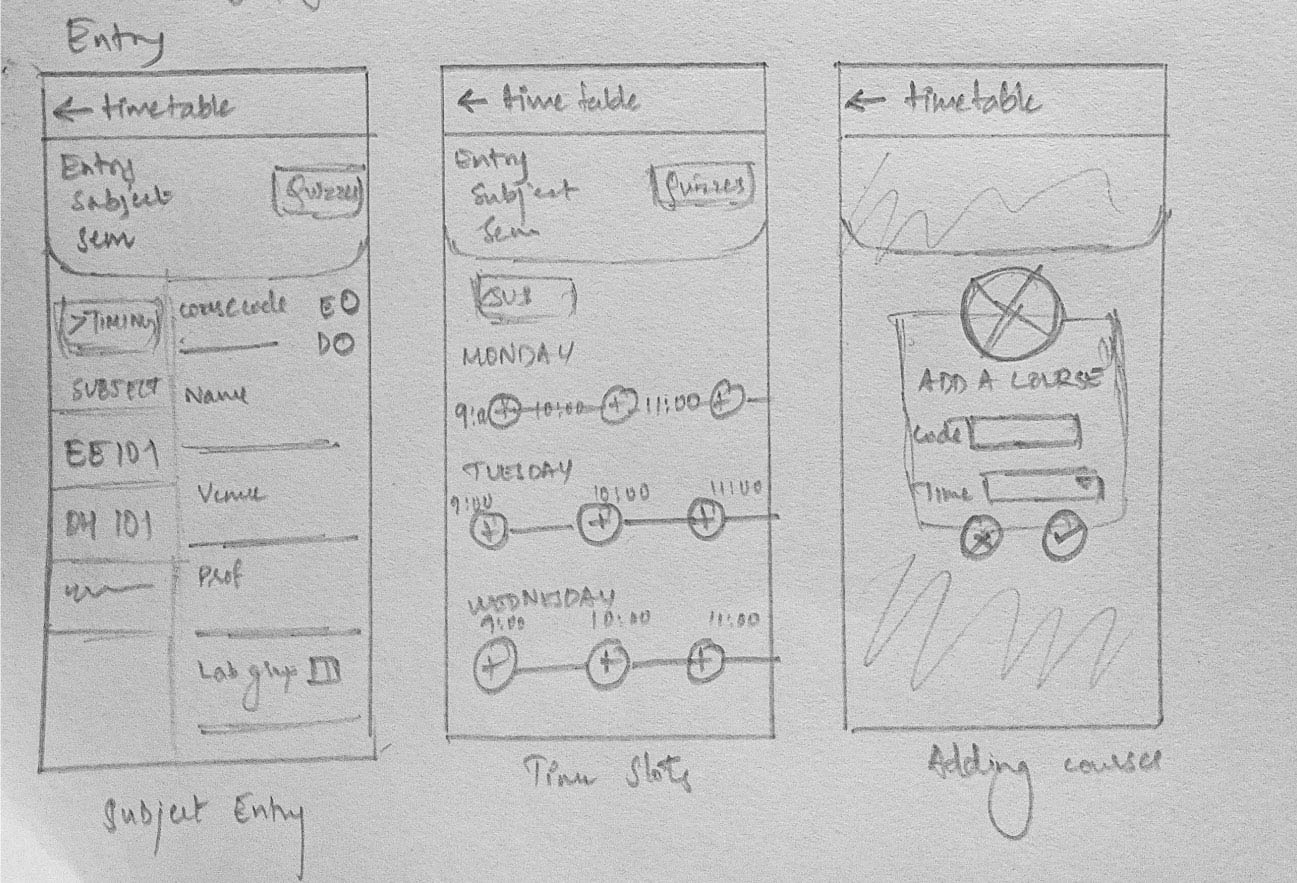 Entry
← timetable
Entry
Subject
Sem
Quizzes
>TIMING
SUBJECT
EE 101
DH 101
course code
E
D
Name
Venue
Prof
Lab grup
Subject Entry
← time table
Entry
Subject
Sem
Quizzes
<SUB
MONDAY
10:00 11:00
TUESDAY
9:00 10:00 11:00
WEDNESDAY
9:00 10:00 11:00
Time Slots
← timetable
ADD A COURSE
Code
Time
Adding courses